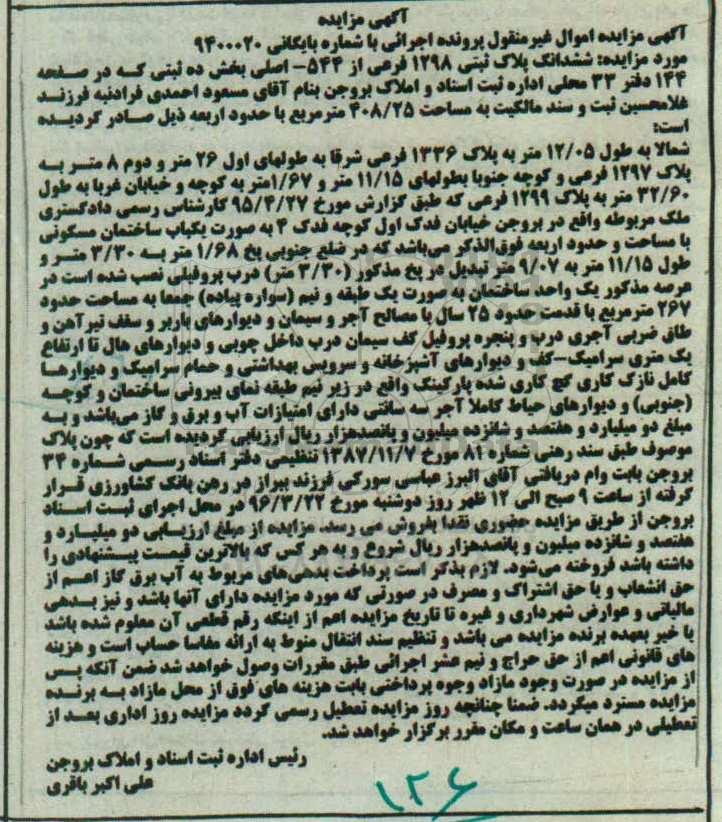 آگهی مزایده
آگهی مزایده اموال غیرمنقول پرونده اجرائی با شماره بایگانی ۹۴۰۰۰۲۰
مورد مزایده: ششدانگ پلاک ثبتی ۱۲۹۸ فرعی از ۵۴۴- اصلی بخش ده ثبتی که در صفحه
۱۴۴ دفتر ۳۳ محلی اداره ثبت اسناد و املاک بروجن بنام آقای مسعود احمدی فرادنبه فرزند
غلامحسین ثبت و سند مالکیت به مساحت ۴۰۸/۲۵ مترمربع با حدود اربعه ذیل صادر گردیده
است:
شمالا به طول ۱۲/۰۵ متر به پلاک ۱۳۳۶ فرعی شرقا به طولهای اول ۲۶ متر و دوم ۸ متر به
پلاک ۱۲۹۷ فرعی و کوچه جنوبا بطولهای ۱۱/۱۵ متر و ۱/۶۷متر به کوچه و خیابان غربا به طول
۳۲/۶۰ متر به پلاک ۱۲۹۹ فرعی که طبق گزارش مورخ ۹۵/۴/۲۷ کارشناس رسمی دادگستری
ملک مربوطه واقع در بروجن خیابان فدک اول کوچه فدک ۴ به صورت یکباب ساختمان مسکونی
با مساحت و حدود اربعه فوق‌الذکر می‌باشد که در ضلع جنوبی پخ ۱/۶۸ متر به ۳/۳۰ متر و
طول ۱۱/۱۵ متر به ۹/۰۷ متر تبدیل در پخ مذکور (۳/۳۰ متر) درب پروفیلی نصب شده است در
عرصه مذکور یک واحد ساختمان به صورت یک طبقه و نیم (سواره پیاده) جمعا به مساحت حدود
۲۶۷ مترمربع با قدمت حدود ۲۵ سال با مصالح آجر و سیمان و دیوارهای باربر و سقف تیرآهن و
طاق ضربی آجری درب و پنجره پروفیل کف سیمان درب داخل چوبی و دیوارهای هال تا ارتفاع
یک متری سرامیک-کف و دیوارهای آشپزخانه و سرویس بهداشتی و حمام سرامیک و دیوارها
کامل نازک کاری گچ کاری شده پارکینگ واقع در زیر نیم طبقه نمای بیرونی ساختمان و کوچه
(جنوبی) و دیوارهای حیاط کاملا آجر سه سانتی دارای امتیازات آب و برق و گاز می‌باشد و به
مبلغ دو میلیارد و هفتصد و شانزده میلیون و پانصدهزار ریال ارزیابی گردیده است که چون پلاک
موصوف طبق سند رهنی شماره ۸۱ مورخ ۱۳۸۷/۱۱/۷ تنظیمی دفتر اسناد رسمی شماره ۳۴
بروجن بابت وام دریافتی آقای البرز عباسی سورکی فرزند بیراز در رهن بانک کشاورزی قرار
گرفته از ساعت ۹ صبح الی ۱۲ ظهر روز دوشنبه مورخ ۹۶/۳/۲۲ در محل اجرای ثبت اسناد
بروجن از طریق مزایده حضوری نقدا بفروش می رسد. مزایده از مبلغ ارزیابی دو میلیارد و
هفتصد و شانزده میلیون و پانصدهزار ریال شروع و به هر کس که بالاترین قیمت پیشنهادی را
داشته باشد فروخته می‌شود. لازم بذکر است پرداخت بدهی‌های مربوط به آب برق گاز اعم از
حق انشعاب و یا حق اشتراک و مصرف در صورتی که مورد مزایده دارای آنها باشد و نیز بدهی
مالیاتی و عوارض شهرداری و غیره تا تاریخ مزایده اعم از اینکه رقم قطعی آن معلوم شده باشد
یا خیر بعهده برنده مزایده می باشد و تنظیم سند انتقال منوط به ارائه مفاسا حساب است و هزینه
های قانونی اعم از حق حراج و نیم عشر اجرائی طبق مقررات وصول خواهد شد ضمن آنکه پس
از مزایده در صورت وجود مازاد وجوه پرداختی بابت هزینه های فوق از محل مازاد به برنده
مزایده مسترد میگردد. ضمنا چنانچه روز مزایده تعطیل رسمی گردد مزایده روز اداری بعد از
تعطیلی در همان ساعت و مکان مقرر برگزار خواهد شد.
رئیس اداره ثبت اسناد و املاک بروجن
علی اکبر باقری
۱۲۶